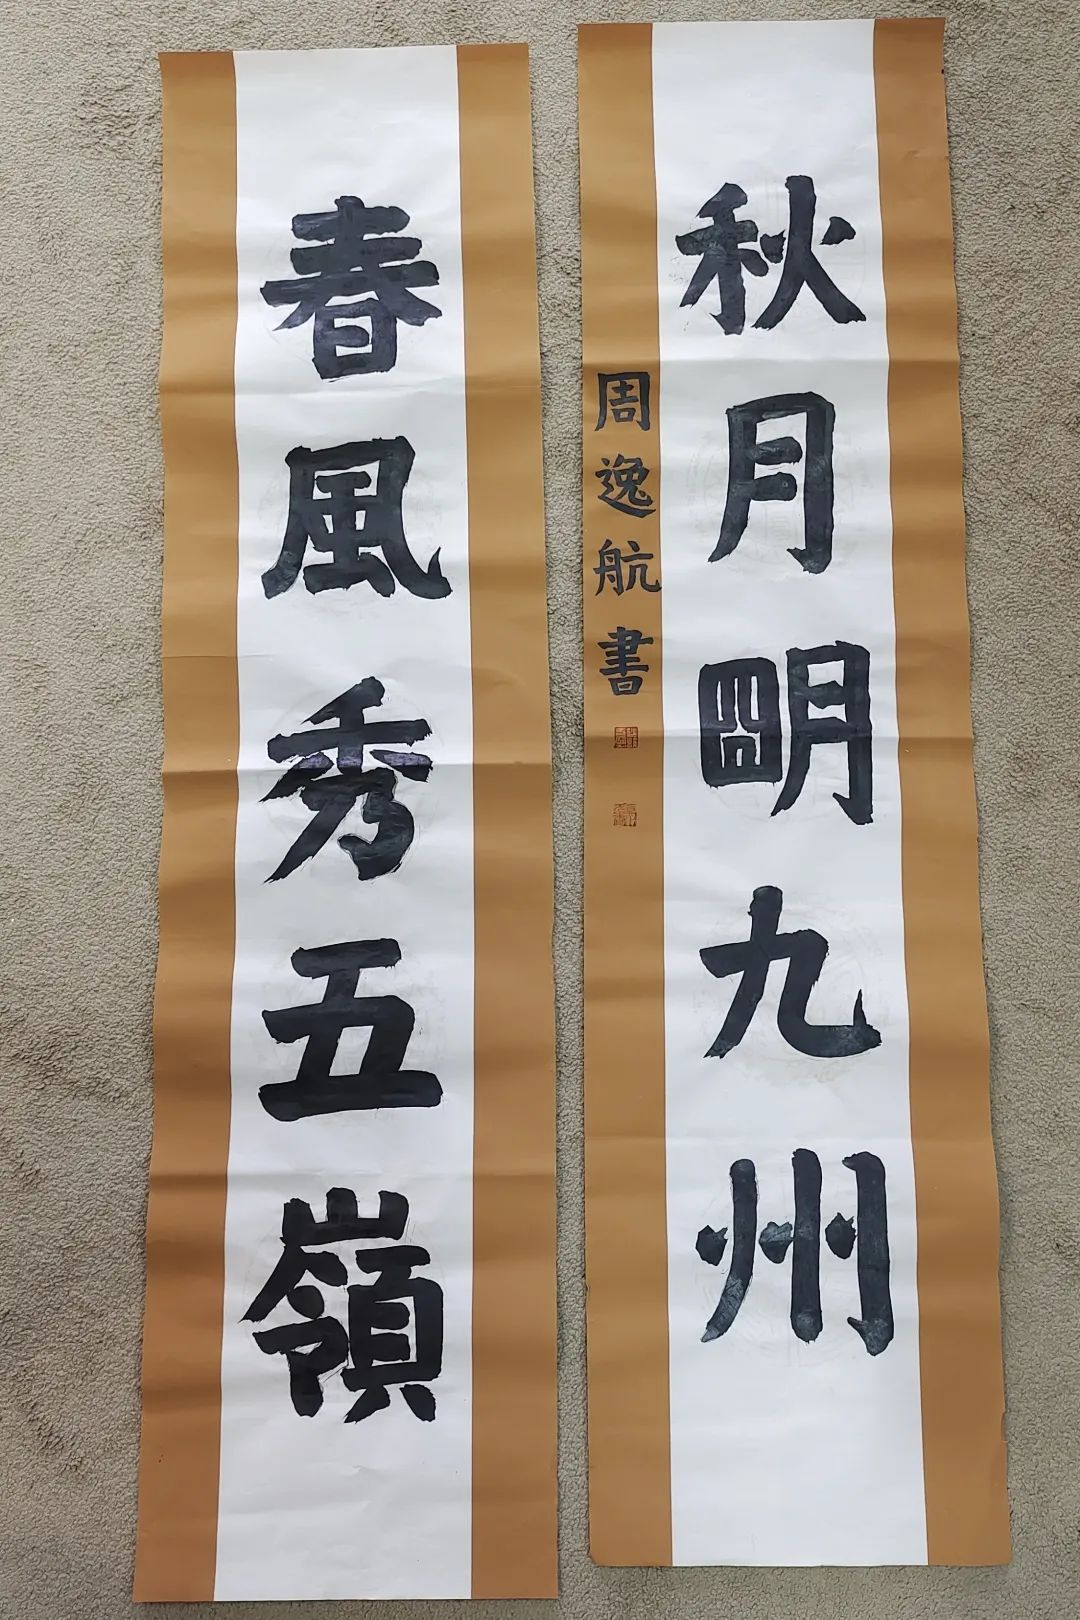 秋月明九州
周逸航書
春風秀五嶺